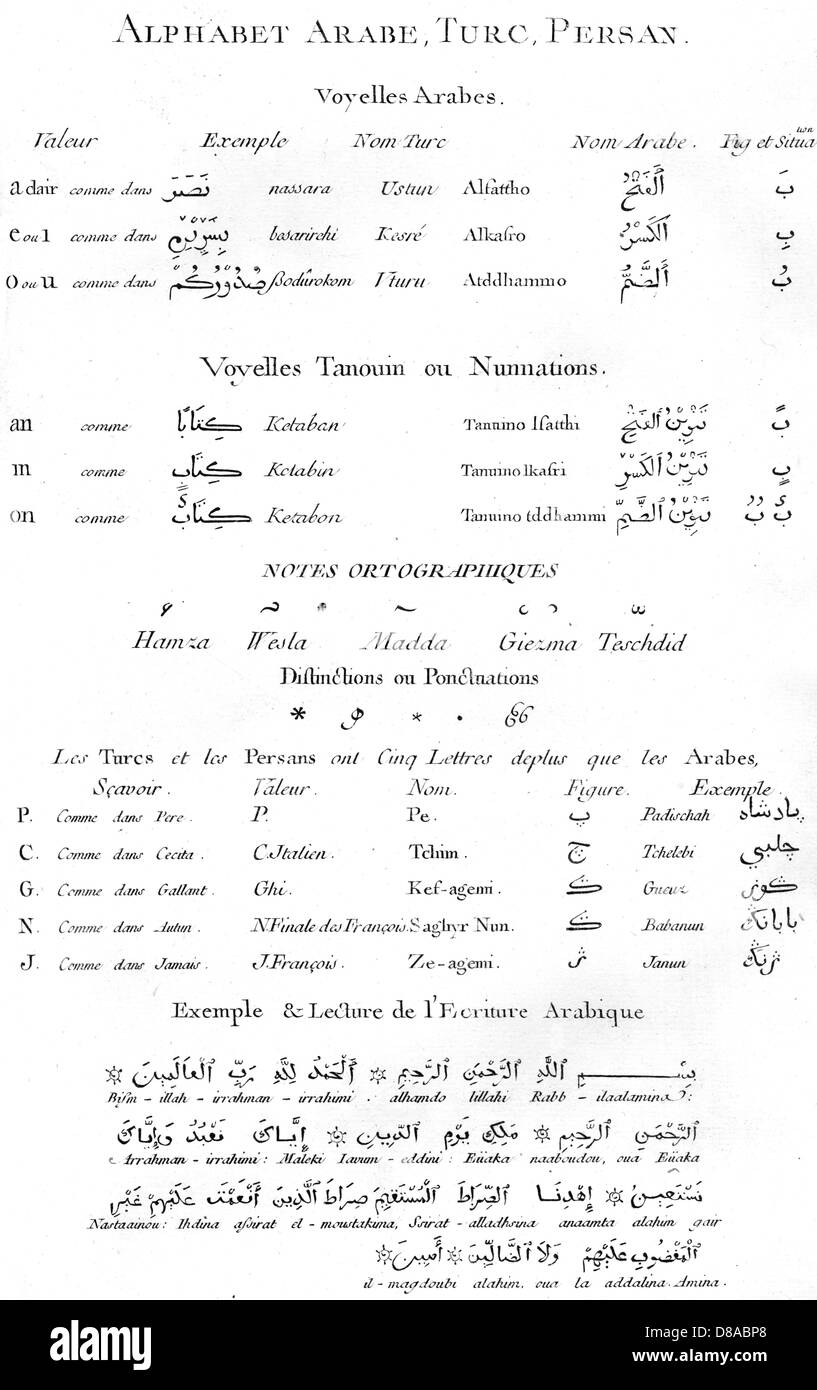 ALPHABET ARABE, TURC, PERSAN.
Voyelles Arabes.
Valeur Exemple Nom Turc Nom Arabe. Fig et Situaтion
a dair comme dans نَصَرَ nassara Ustun Alfattho اَلْفَتْحُ بَ
e ou I comme dans besarirehi Kesré Alkasro اَلْكَسْرُ بِ
O ou U comme dans صُدُورُكُمْ ßodûrokom Uturu Atddhammo اَلضَّمُّ بُ
Voyelles Tanouin ou Nunnations.
an comme كِتَابًا Ketaban Tanuino lfatthi تَنْوِينُ الْفَتْحِ بً
in comme كِتَابٍ Ketabin Tanuino lkasri تَنْوِينُ الْكَسْرِ بٍ
on comme كِتَابٌ Ketabon Tanuino tddhammi تَنْوِينُ الضَّمِّ بٌ بٌ
NOTES ORTOGRAPHIQUES
Hamza Wesla Madda Giezma Teschdid
Distinctions ou Ponctuations
Les Turcs et les Persans ont Cinq Lettres deplus que les Arabes,
Sçavoir. Valeur. Nom. Figure. Exemple.
P. Comme dans Pere. P. Pe. پ Padischah پادشاه
C. Comme dans Cecita. C Italien. Tchim. چ Tchelebi چلبي
G. Comme dans Gallant. Ghi. Kef-agemi. Gueuz كوز
N. Comme dans Autun. N Finale des François. Saghyr Nun. Babanun بابانڭ
J. Comme dans Jamais. J. François. Ze-agemi. ژ Janun ژنڭ
Exemple & Lecture de l'Ecriture Arabique
بِسْمِ اللّٰهِ الرَّحْمٰنِ الرَّحِيمِ ۞ اَلْحَمْدُ لِلّٰهِ رَبِّ الْعَالَمِينَ ۞
Bism - illah - irrahman - irrahimi. alhamdo lillahi Rabb - ilaalamina:
الرَّحْمٰنِ الرَّحِيمِ ۞ مَلِكِ يَوْمِ الدِّينِ ۞ إِيَّاكَ نَعْبُدُ وَإِيَّاكَ
Arrahman - irrahimi: Maleki Iavum - eddini: Eüaka naaboudou, oua Eüaka
نَسْتَعِينُ ۞ اِهْدِنَا الصِّرَاطَ الْمُسْتَقِيمَ صِرَاطَ الَّذِينَ أَنْعَمْتَ عَلَيْهِمْ غَيْرِ
Nastaainou: Ihdina assirat el - moustakima, Ssirat - alladhsina anaamta alahim gair
الْمَغْضُوبِ عَلَيْهِمْ وَلَا الضَّالِّينَ ۞ أَمِينَ ۞
il - magdoubi alahim, oua la addalina. Amina.
alamy
www.alamy.com
D8ABP8